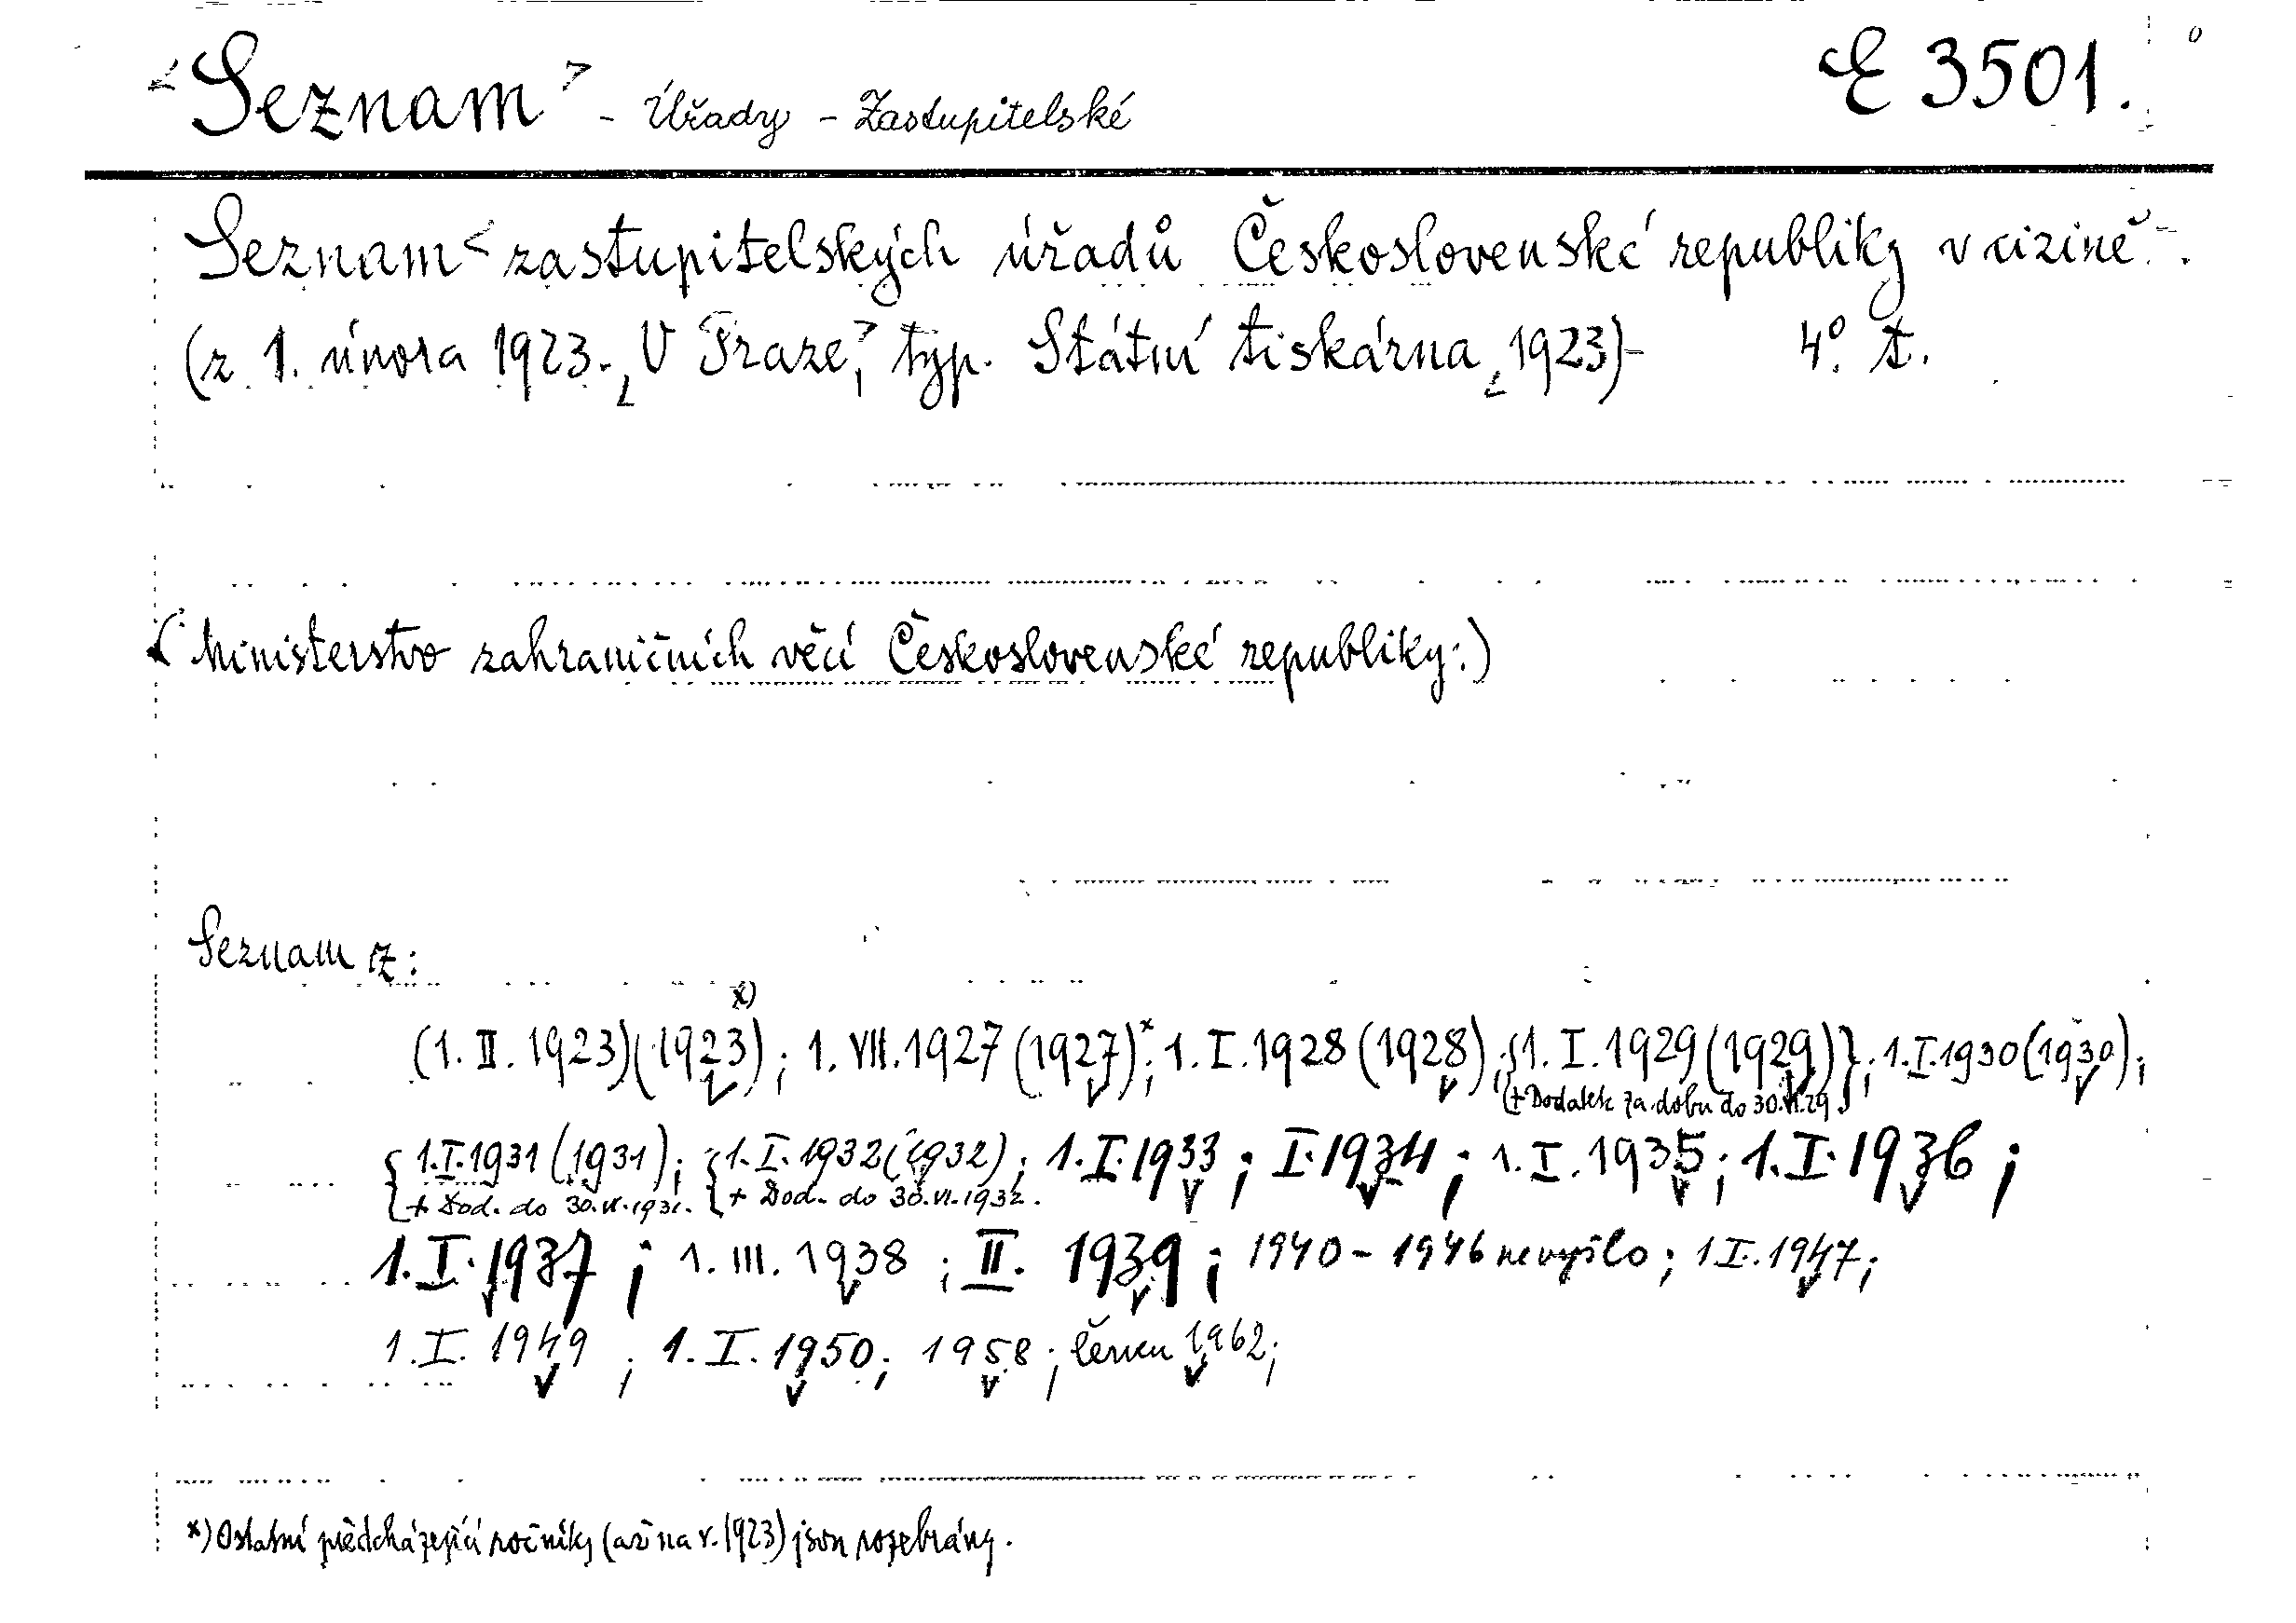 <Seznam> - Úřady - Zastupitelské E 3501.
Seznam < zastupitelských úřadů Československé republiky v cizině.
(z 1. února 1923., V Praze, typ. Státní tiskárna, 1923)- 4° t.
(Ministerstvo zahraničních věcí Československé republiky:)
Seznam z:
(1. II. 1923)(1923)x); 1. VII. 1927 (1927)*; 1. I. 1928 (1928); {1. I. 1929 (1929)}; 1. I. 1930 (1930);
(+ Dodatek za dobu do 30.VI.29)
{1. I. 1931 (1931); {1. I. 1932 (1932); 1. I. 1933; I. 1934; 1. I. 1935; 1. I. 1936;
+ Dod. do 30.VI.1931. + Dod. do 30.VI.1932.
1. I. 1937; 1. III. 1938; II. 1939; 1940 - 1946 nevyšlo; 1 I. 1947;
1. I. 1949; 1. I. 1950; 1958; červen 1962;
x) Ostatní předcházející ročníky (až na r. 1923) jsou rozebrány.